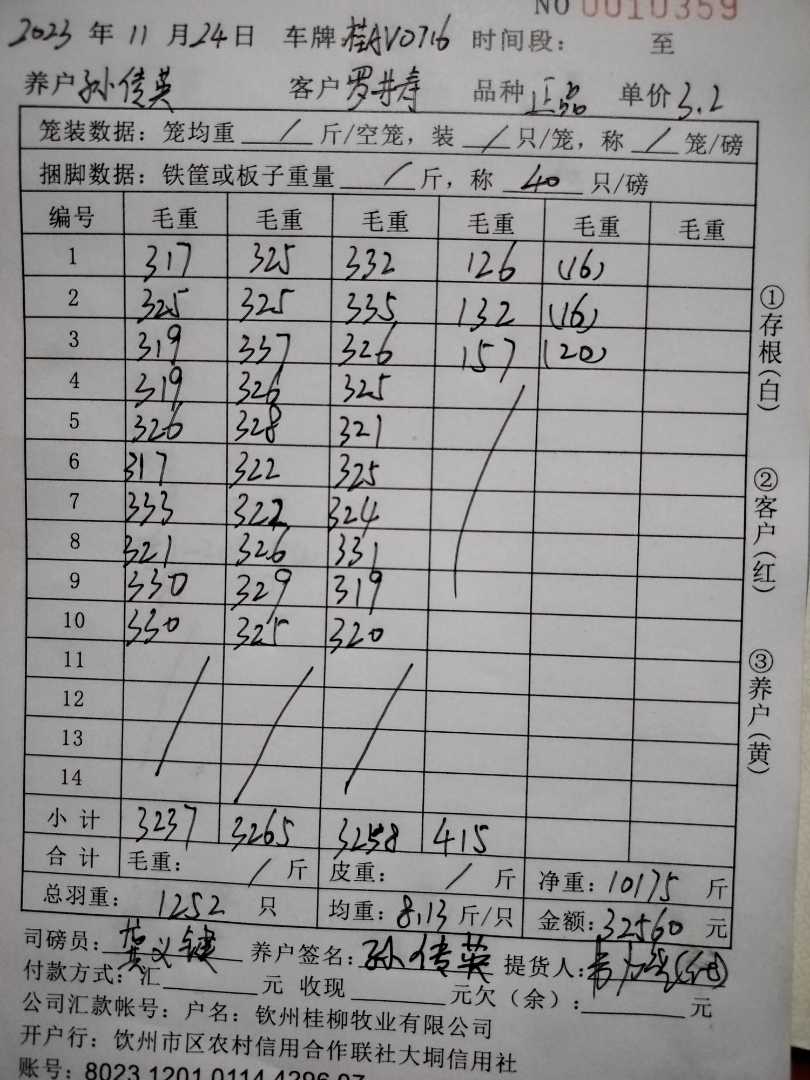 NO 0010359
2023 年 11 月 24 日 车牌: 桂AV0716 时间段: 至
养户 孙传英 客户 罗井寿 品种 正品 单价 3.2
笼装数据: 笼均重 / 斤/空笼, 装 / 只/笼, 称 / 笼/磅
捆脚数据: 铁筐或板子重量 / 斤, 称 40 只/磅
编号 毛重 毛重 毛重 毛重 毛重 毛重
1 317 325 332 126 (16)
2 325 325 335 132 (16)
3 319 337 326 157 (20)
4 319 326 325
5 326 328 321
6 317 322 325
7 333 322 324
8 321 326 331
9 330 329 319
10 330 325 320
11
12
13
14
小计 3237 3265 3258 415
合计 毛重: / 斤 皮重: / 斤 净重: 10175 斤
总羽重: 1252 只 均重: 8.13 斤/只 金额: 32560 元
司磅员: 养户签名: 孙传英 提货人:
付款方式: 汇 元 收现 元欠（余）: 元
公司汇款帐号: 户名: 钦州桂柳牧业有限公司
开户行: 钦州市区农村信用合作联社大垌信用社
账号: 8023 1201 0114 4296 07
①存根(白)
②客户(红)
③养户(黄)